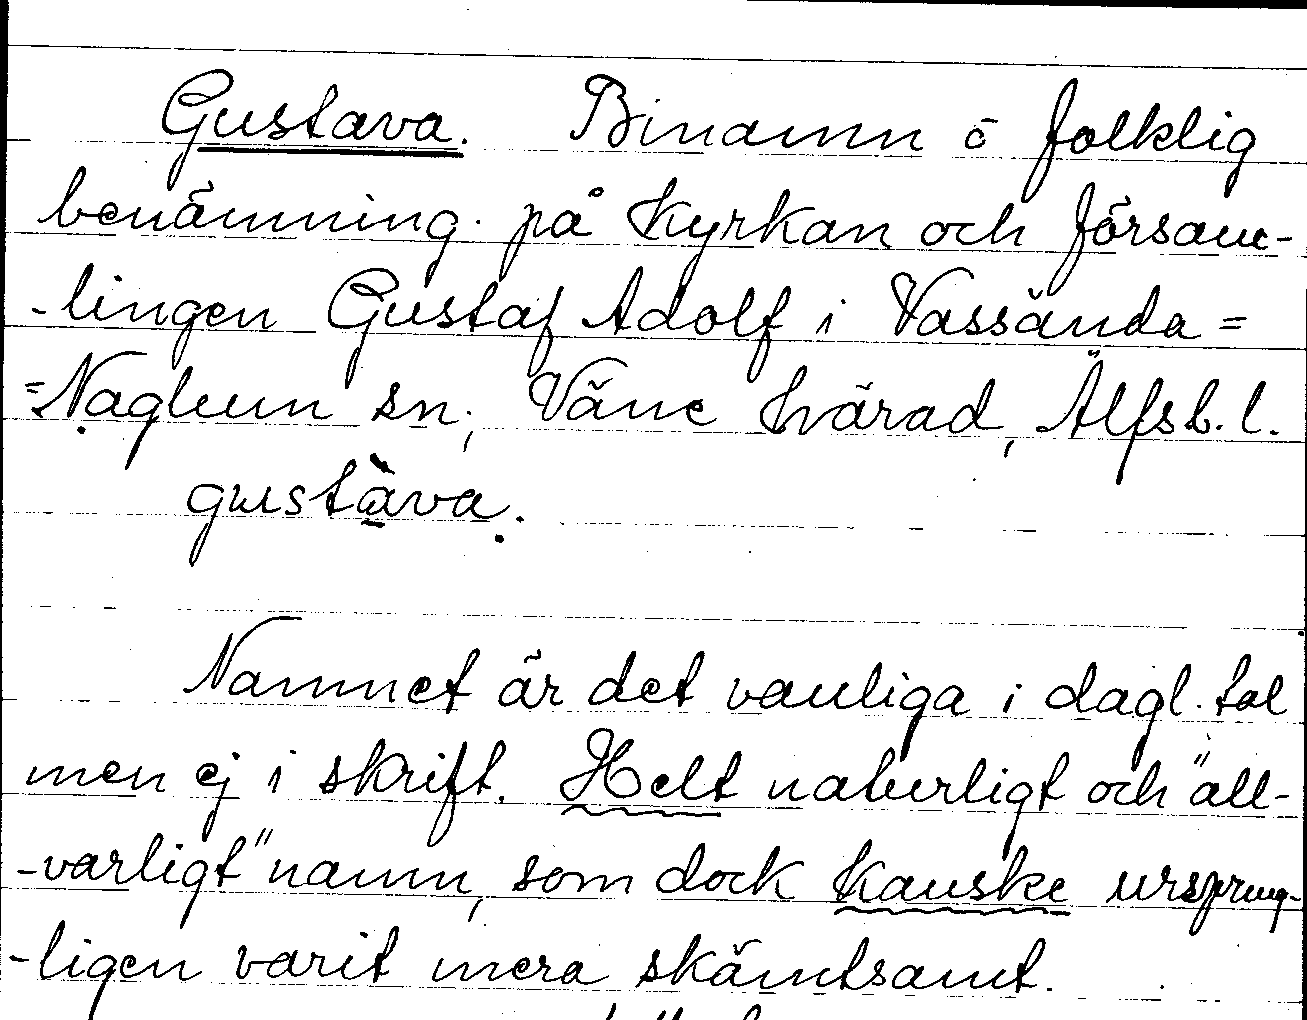 Gustava. Binamn o folklig
benämning på kyrkan och försam-
-lingen Gustaf Adolf i Vassända=
=Naglum sn, Väne härad, Älfsb. l.
gustàva.
Namnet är det vanliga i dagl. tal
men ej i skrift. Helt naturligt och "all-
-varligt" namn, som dock kanske ursprung-
-ligen varit mera skämtsamt.